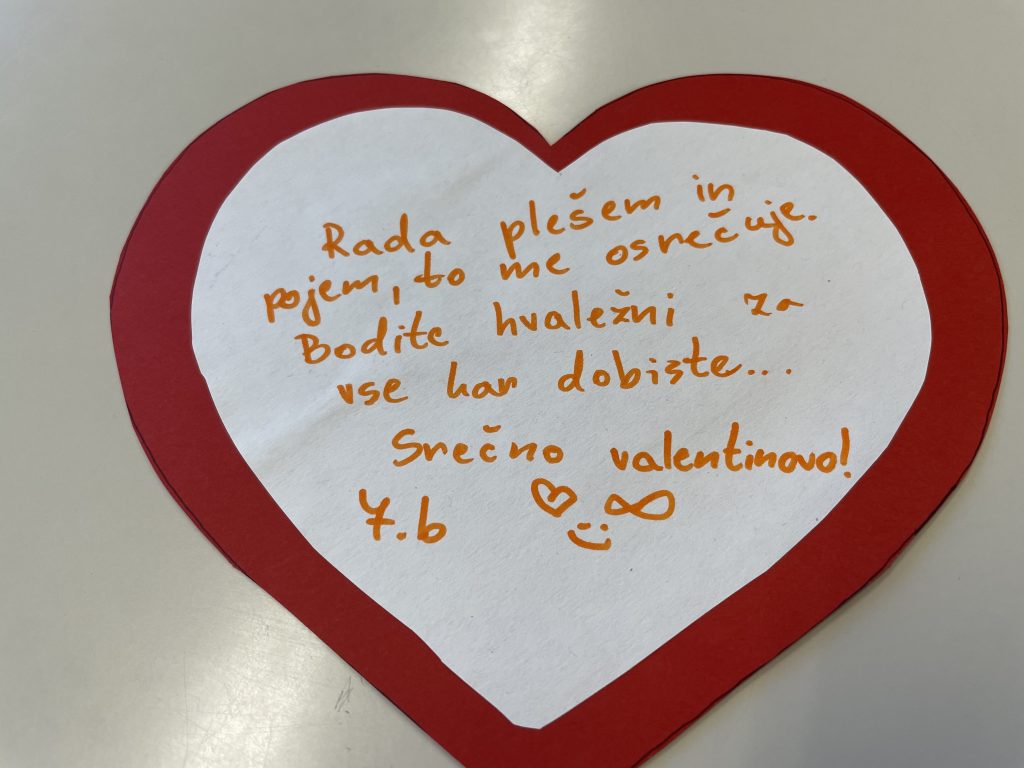 Rada plešem in
pojem, to me osrečuje.
Bodite hvaležni za
vse kar dobiste...
Srečno valentinovo!
7.b